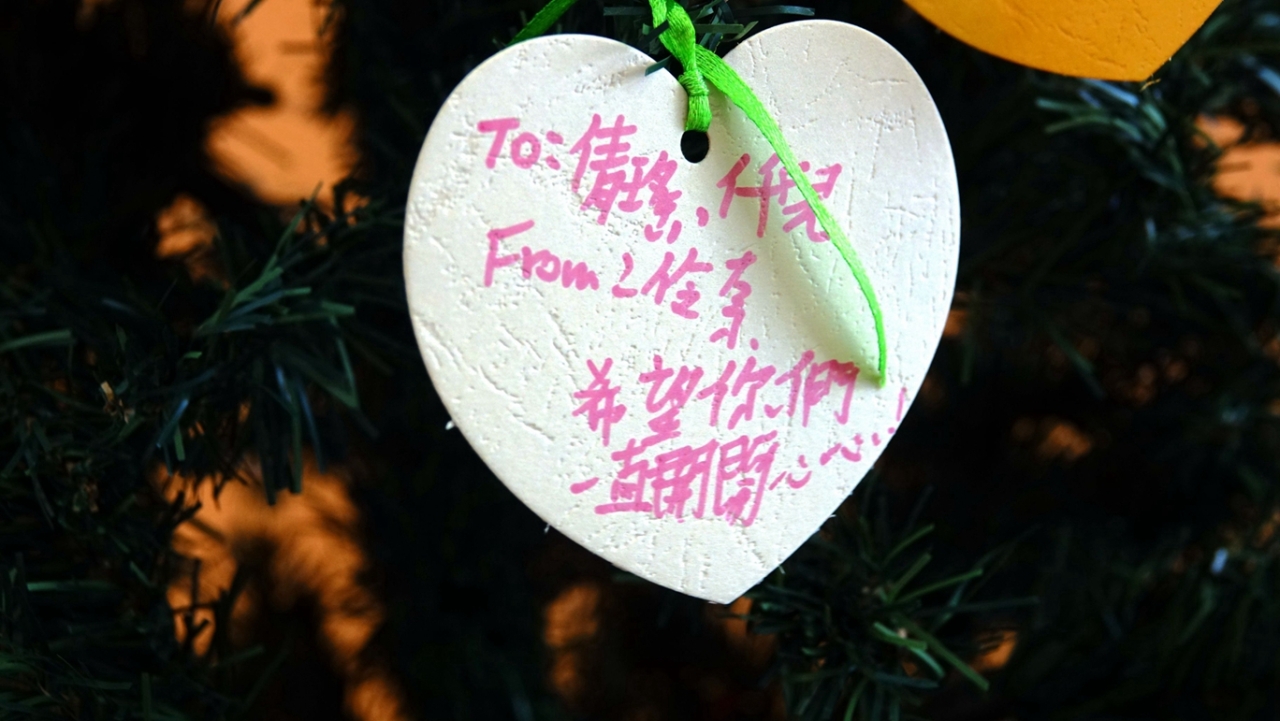 To:倩瑤、仟兒
From:佺
希望你們
一直開開心心!